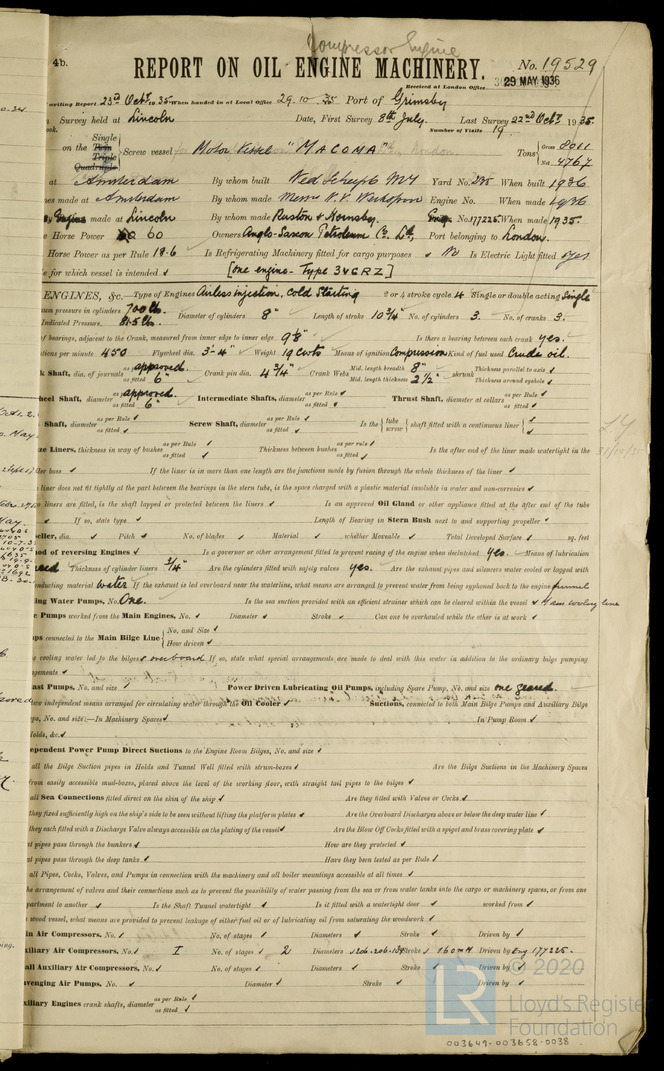 Compressor Engine
4b.
REPORT ON OIL ENGINE MACHINERY.
No. 19529
Received at London Office
29 MAY 1936
writing Report 23rd Octr 1935 When handed in at Local Office 29.10.35 Port of Grimsby
Survey held at Lincoln Date, First Survey 8th July. Last Survey 22nd Octr 1935
Number of Visits 19
on the Single Twin Triple Quadruple Screw vessel Motor Vessel "MACOMA" Tons Gross 8011 Net 4767
at Amsterdam By whom built Yard No. When built 1936
made at Amsterdam By whom made Messrs N.V. Werkspoor Engine No. When made 1936
Engines made at Lincoln By whom made Ruston & Hornsby. No. 177225 When made 1935.
Horse Power 60 Owners Anglo-Saxon Petroleum Co. Ltd, Port belonging to London.
Horse Power as per Rule 18.6 Is Refrigerating Machinery fitted for cargo purposes No Is Electric Light fitted yes
for which vessel is intended [One engine - Type 3VCRZ]
ENGINES, &c. Type of Engines Airless injection, Cold Starting 2 or 4 stroke cycle 4 Single or double acting Single
pressure in cylinders 700 lb. Diameter of cylinders 8" Length of stroke 10¾" No. of cylinders 3. No. of cranks 3.
Indicated Pressure. 85 lb.
of bearings, adjacent to the Crank, measured from inner edge to inner edge 9⅛" Is there a bearing between each crank yes.
per minute 450 Flywheel dia. 3'-4" Weight 19 cwts Means of ignition Compression Kind of fuel used Crude oil.
Shaft, dia. of journals as per Rule approved. as fitted 6" Crank pin dia. 4¾" Crank Webs Mid. length breadth 8" Mid. length thickness 2½" shrunk Thickness parallel to axis Thickness around eyehole
Shaft, diameter as per Rule approved. as fitted 6" Intermediate Shafts, diameter as per Rule as fitted Thrust Shaft, diameter at collars as per Rule as fitted
Shaft, diameter as per Rule as fitted Screw Shaft, diameter as per Rule as fitted Is the tube screw shaft fitted with a continuous liner
Liners, thickness in way of bushes as per Rule as fitted Thickness between bushes as per rule as fitted Is the after end of the liner made watertight in the
boss If the liner is in more than one length are the junctions made by fusion through the whole thickness of the liner
liner does not fit tightly at the part between the bearings in the stern tube, is the space charged with a plastic material insoluble in water and non-corrosive
liners are fitted, is the shaft lapped or protected between the liners Is an approved Oil Gland or other appliance fitted at the after end of the tube
If so, state type Length of Bearing in Stern Bush next to and supporting propeller
dia. Pitch No. of blades Material whether Moveable Total Developed Surface sq. feet
of reversing Engines Is a governor or other arrangement fitted to prevent racing of the engine when declutched yes. Means of lubrication
Thickness of cylinder liners ¾" Are the cylinders fitted with safety valves yes. Are the exhaust pipes and silencers water cooled or lagged with
conducting material water If the exhaust is led overboard near the waterline, what means are arranged to prevent water from being syphoned back to the engine funnel
Water Pumps, No. One. Is the sea suction provided with an efficient strainer which can be cleared within the vessel
Pumps worked from the Main Engines, No. Diameter Stroke Can one be overhauled while the other is at work
connected to the Main Bilge Line No. and Size How driven
cooling water led to the bilges overboard If so, state what special arrangements are made to deal with this water in addition to the ordinary bilge pumping
Pumps, No. and size Power Driven Lubricating Oil Pumps, including Spare Pump, No. and size one geared.
two independent means arranged for circulating water through the Oil Cooler Suctions, connected to both Main Bilge Pumps and Auxiliary Bilge
No. and size:—In Machinery Spaces In Pump Room
Holds, &c.
Power Pump Direct Suctions to the Engine Room Bilges, No. and size
all the Bilge Suction pipes in Holds and Tunnel Well fitted with strum-boxes Are the Bilge Suctions in the Machinery Spaces
from easily accessible mud-boxes, placed above the level of the working floor, with straight tail pipes to the bilges
all Sea Connections fitted direct on the skin of the ship Are they fitted with Valves or Cocks
they fixed sufficiently high on the ship's side to be seen without lifting the platform plates Are the Overboard Discharges above or below the deep water line
they each fitted with a Discharge Valve always accessible on the plating of the vessel Are the Blow Off Cocks fitted with a spigot and brass covering plate
pipes pass through the bunkers How are they protected
pipes pass through the deep tanks Have they been tested as per Rule
all Pipes, Cocks, Valves, and Pumps in connection with the machinery and all boiler mountings accessible at all times
the arrangement of valves and their connections such as to prevent the possibility of water passing from the sea or from water tanks into the cargo or machinery spaces, or from one
to another Is the Shaft Tunnel watertight Is it fitted with a watertight door worked from
wood vessel, what means are provided to prevent leakage of either fuel oil or of lubricating oil from saturating the woodwork
Air Compressors, No. No. of stages Diameters Stroke Driven by
Air Compressors, No. I No. of stages 2 Diameters Stroke 160 mm Driven by Eng 177225.
Auxiliary Air Compressors, No. No. of stages Diameters Stroke Driven by
Air Pumps, No. Diameter Stroke Driven by
Engines crank shafts, diameter as per Rule as fitted
LR © 2020
Lloyd's Register
Foundation
003649-003658-0038